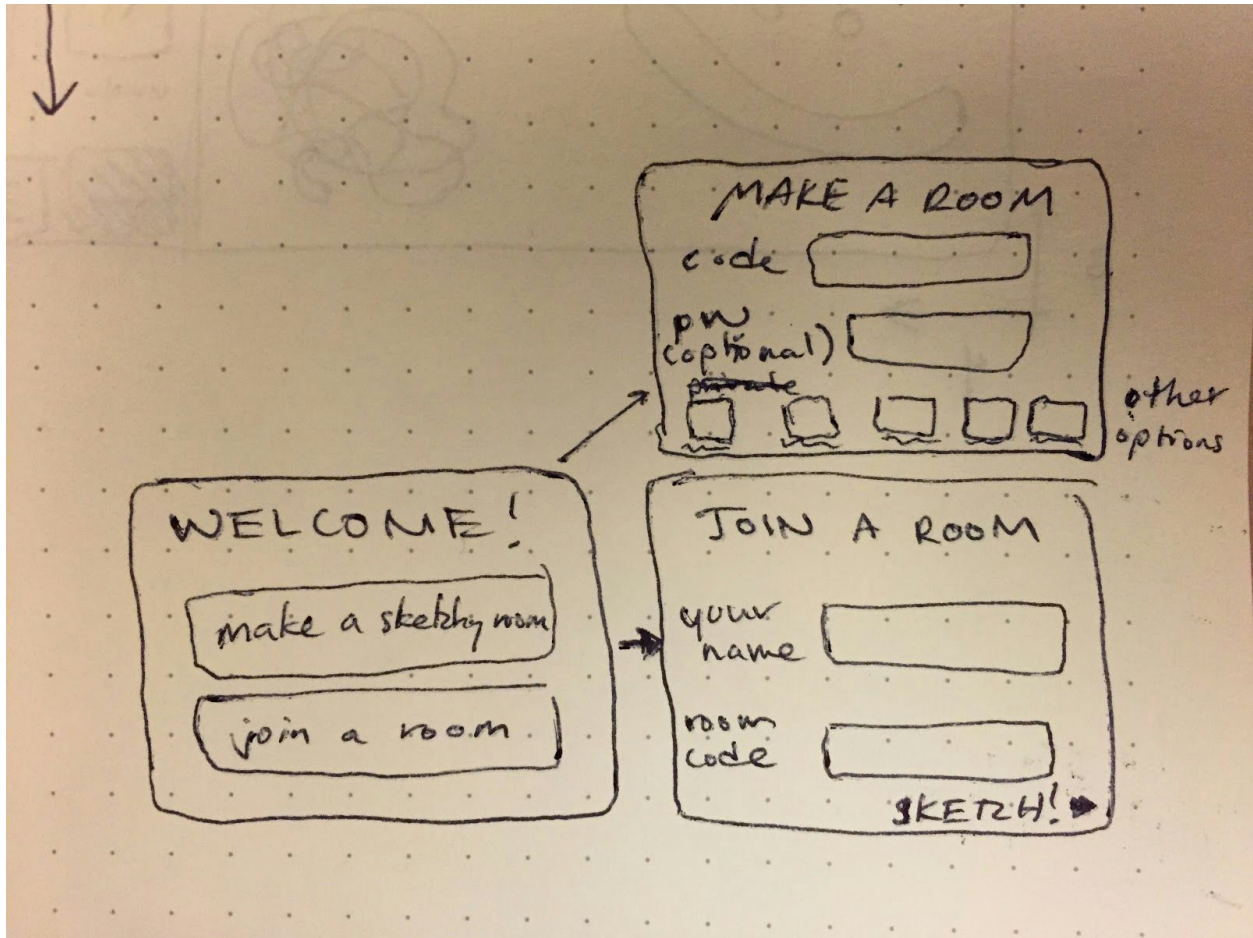 MAKE A ROOM
code
pw
(optional)
private
other
options
WELCOME!
make a sketchy room
join a room
JOIN A ROOM
your
name
room
code
SKETCH!